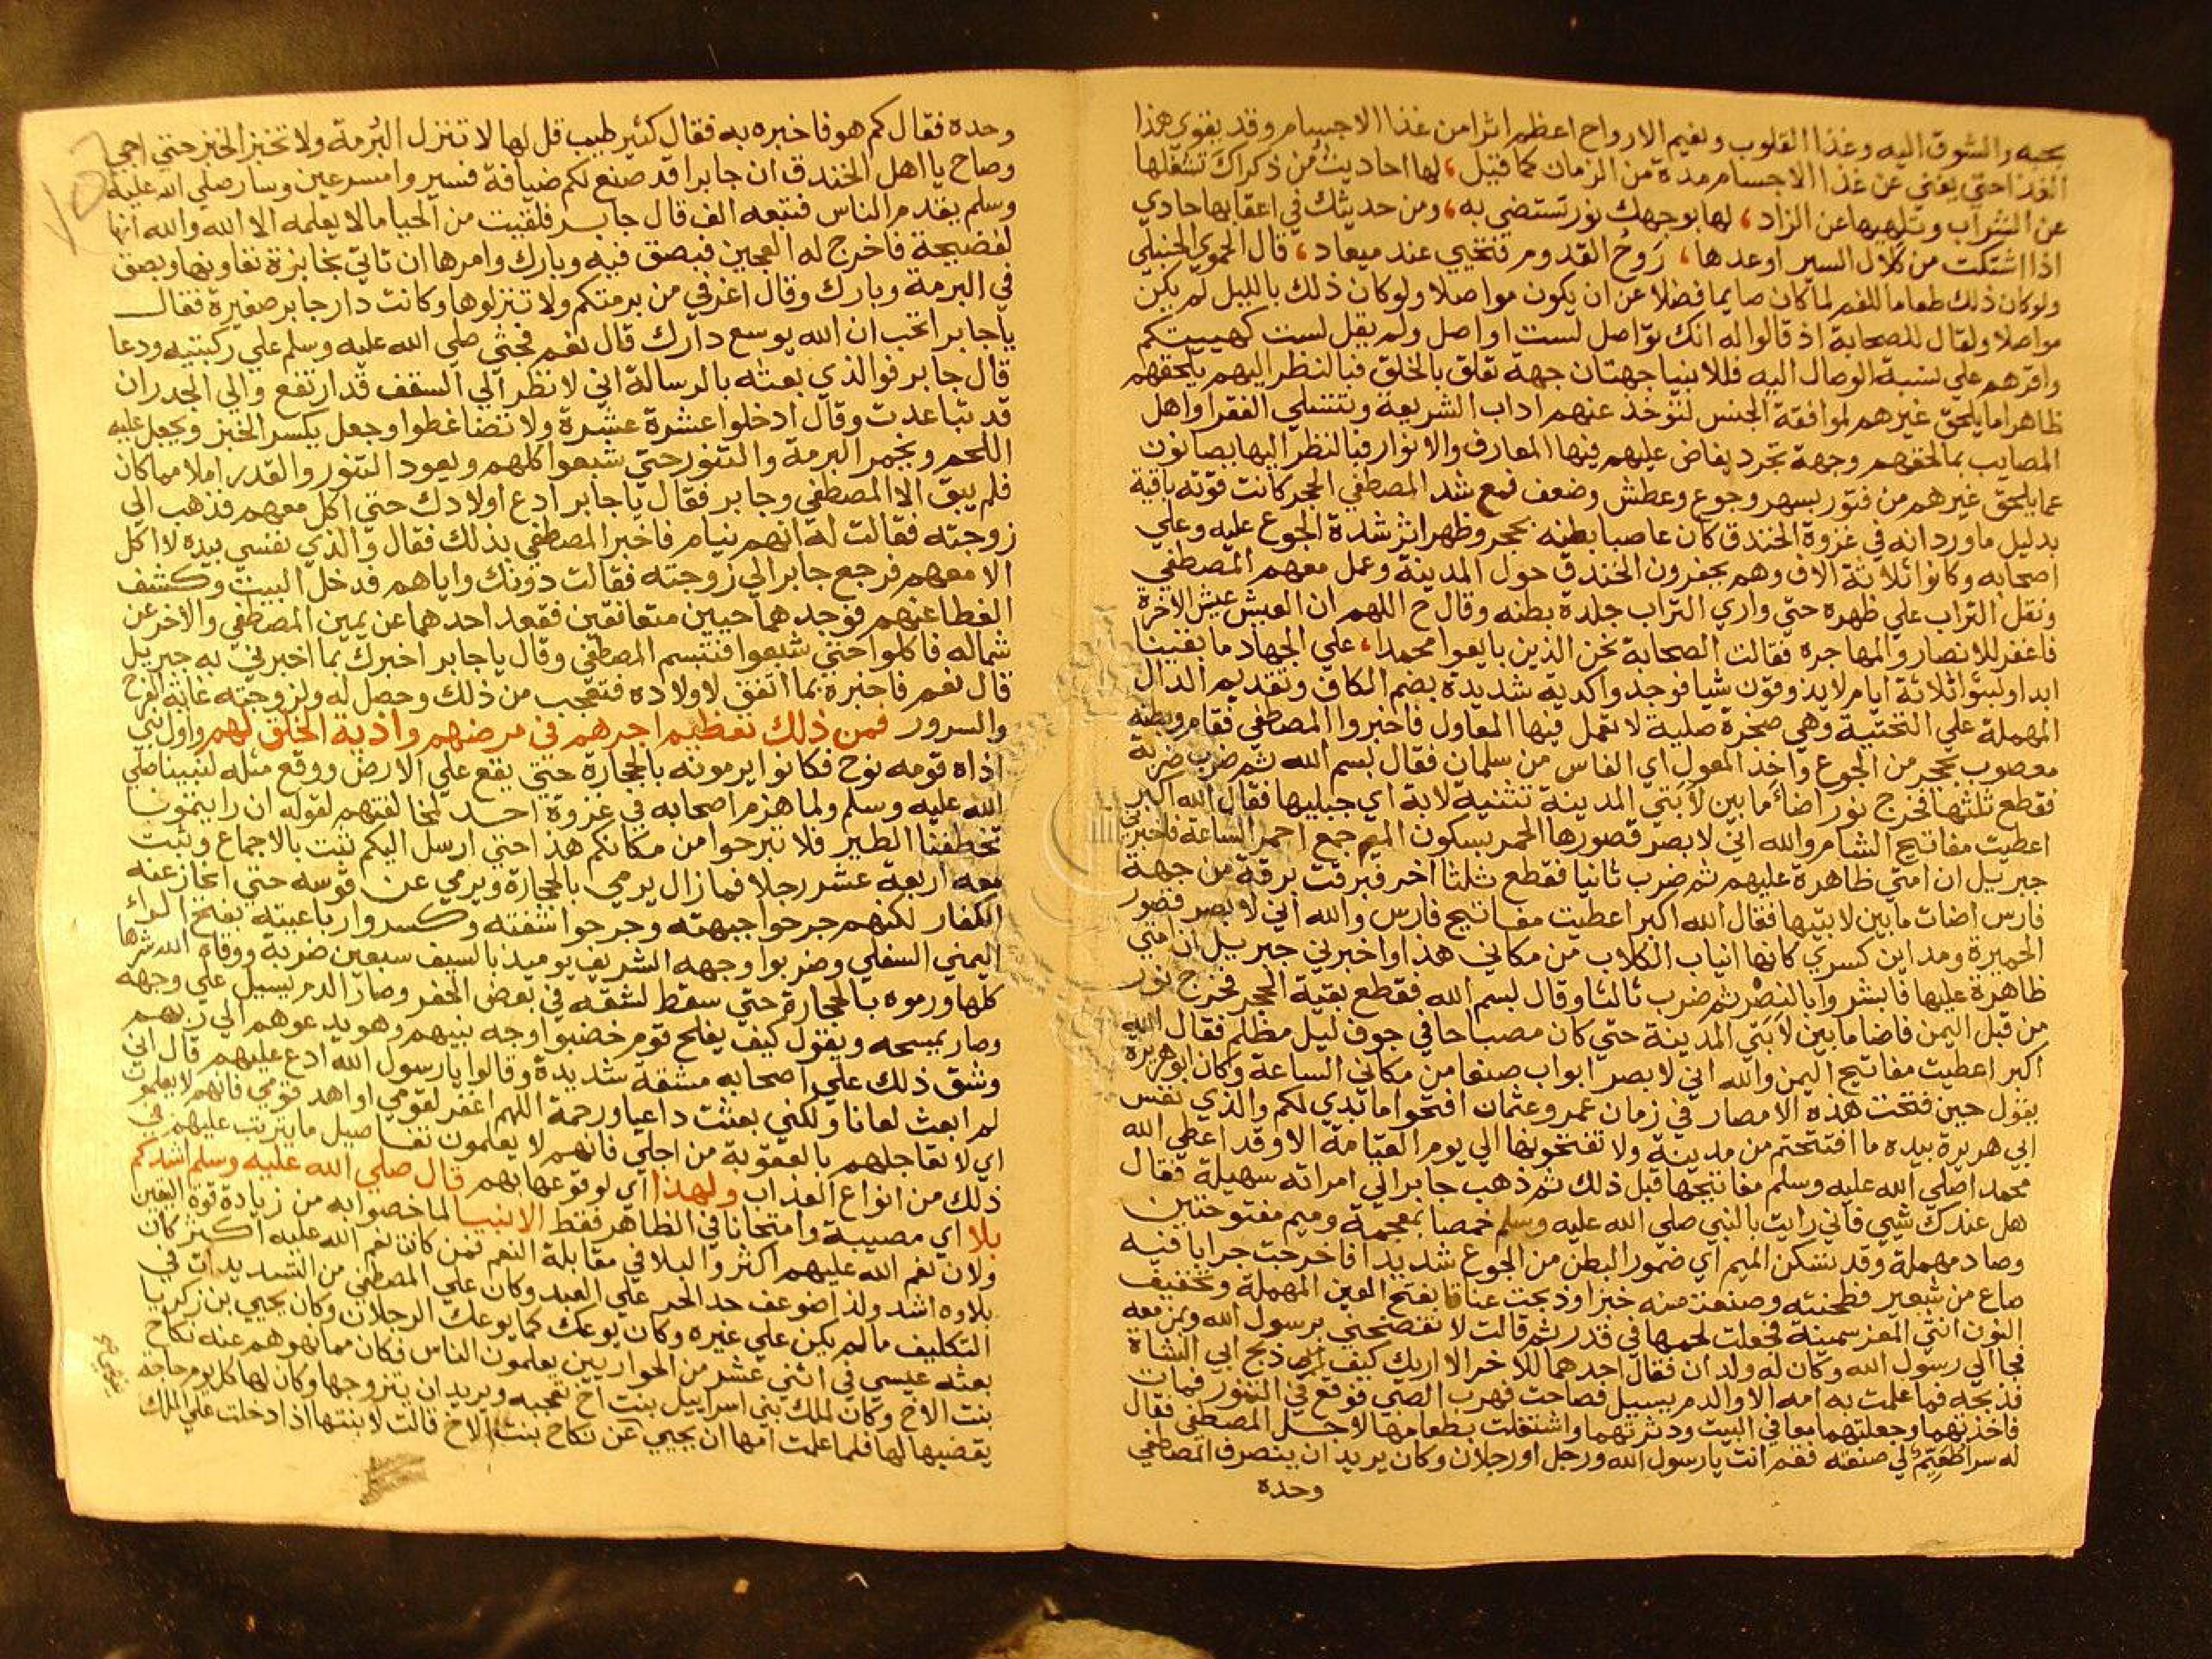 بحبه والشوق اليه وغذا القلوب ونعيم الارواح اعظم اثرا من غذا الاجسام وقد يقوي هذا
الغذا حتي يغني عن غذا الاجسام مدة من الزمان كما قيل، لها احاديث من ذكراك تشغلها
عن الشراب وتلهيها عن الزاد، لها بوجهك نور تستضي به، ومن حديثك في اعقابها حادي
اذا اشتكت من كلال السير اوعدها، روح القدوم فتحيي عند ميعاد، قال الحموي الحنبلي
ولو كان ذلك طعاما للفم لما كان صايما فضلا عن ان يكون مواصلا ولو كان ذلك بالليل لم يكن
مواصلا ولقال للصحابة اذ قالوا له انك تواصل لست اواصل ولم يقل لست كهيئتكم
واقرهم علي نسبة الوصال اليه فللانبيا جهتان جهة تعلق بالخلق فبالنظر اليهم يلحقهم
ظاهرا ما يلحق غيرهم لموافقة الجنس لتوخذ عنهم اداب الشريعة وتتسلي الفقرا واهل
المصايب بما لحقهم وجهة تجرد يفاض عليهم فيها المعارف والانوار فبالنظر اليها يصانون
عما يلحق غيرهم من فتور بسهر وجوع وعطش وضعف فمع شد المصطفي الحجر كانت قوته باقية
بدليل ما ورد انه في غزوة الخندق كان عاصبا بطنه بحجر وظهر اثر شدة الجوع عليه وعلي
اصحابه وكانوا ثلاثة الاف وهم يحفرون الخندق حول المدينة وعمل معهم المصطفي
ونقل التراب علي ظهره حتي واري التراب جلدة بطنه وقال ح اللهم ان العيش عيش الاخرة
فاغفر للانصار والمهاجرة فقالت الصحابة نحن الذين بايعوا محمدا، علي الجهاد ما بقينا
ابدا ولبثوا ثلاثة ايام لا يذوقون شيا فوجدوا كدية شديدة بضم الكاف وتقديم الدال
المهملة علي التحتية وهي صخرة صلبة لا تعمل فيها المعاول فاخبروا المصطفي فقام وبطنه
معصوب بحجر من الجوع واخذ المعول اي الفاس من سلمان فقال بسم الله ثم ضرب ضربة
فقطع ثلثها فخرج نور اضاء ما بين لابتي المدينة تثنية لابة اي جبليها فقال الله اكبر
اعطيت مفاتيح الشام والله اني لابصر قصورها الحمر بسكون الميم جمع احمر الساعة فاخبرني
جبريل ان امتي ظاهرة عليهم ثم ضرب ثانيا فقطع ثلثا اخر فبرقت برقة من جهة
فارس اضات ما بين لابتيها فقال الله اكبر اعطيت مفاتيح فارس والله اني لابصر قصور
الحميرة ومداين كسري كانها انياب الكلاب من مكاني هذا واخبرني جبريل ان امتي
ظاهرة عليها فابشروا بالنصر ثم ضرب ثالثا وقال بسم الله فقطع بقية الحجر فخرج نور
من قبل اليمن فاضا ما بين لابتي المدينة حتي كان مصباحا في جوف ليل مظلم فقال الله
اكبر اعطيت مفاتيح اليمن والله اني لابصر ابواب صنعا من مكاني الساعة وكان ابو هريرة
يقول حين فتحت هذه الامصار في زمان عمر وعثمان افتحوا ما بدي لكم والذي نفس
ابي هريرة بيده ما افتتحتم من مدينة ولا تفتحونها الي يوم القيامة الا وقد اعطي الله
محمدا صلي الله عليه وسلم مفاتيحها قبل ذلك ثم ذهب جابر الي امراته سهيلة فقال
هل عندك شيي فاني رايت بالنبي صلي الله عليه وسلم خمصا بمعجمة وميم مفتوحتين
وصاد مهملة وقد تسكن الميم اي ضمور البطن من الجوع شديدا فاخرجت جرابا فيه
صاع من شعير فطحنته وصنعت منه خبزا وذبحت عناقا بفتح العين المهملة وتخفيف
النون انثي المعز سمينة فجعلت لحمها في قدر ثم قالت لا تفضحني برسول الله وبمن معه
فجا الي رسول الله وكان له ولدان فقال احدهما للاخر الا اريك كيف ذبح ابي الشاة
فذبحه فما علمت به امه الا والدم يسيل فصاحت فهرب الصبي فوقع في التنور فمات
فاخذتهما وجعلتهما معا في البيت ودثرتهما واشتغلت بطعامها لاجل المصطفي فقال
له سرا طعيم لي صنعته فقم انت يارسول الله ورجل او رجلان وكان يريد ان ينصرف المصطفي
وحده
وحده فقال كم هو فاخبره به فقال كثير طيب قل لها لا تنزل البرمة ولا تخبز الخبز حتي اجي
وصاح يا اهل الخندق ان جابرا قد صنع لكم ضيافة فسيروا مسرعين وسار صلي الله عليه
وسلم يقدم الناس فتبعه الف قال جابر فلقيت من الحيا ما لا يعلمه الا الله والله انها
لفضيحة فاخرج له العجين فبصق فيه وبارك وامرها ان تاتي بخابزة تعاونها وبصق
في البرمة وبارك وقال اغرفي من برمتكم ولا تنزلوها وكانت دار جابر صغيرة فقال
ياجابر اتحب ان الله يوسع دارك قال نعم فجثي صلي الله عليه وسلم علي ركبتيه ودعا
قال جابر فوالذي بعثه بالرسالة اني لانظر الي السقف قد ارتفع والي الجدران
قد تباعدت وقال ادخلوا عشرة عشرة ولا تضاغطوا وجعل يكسر الخبز ويجعل عليه
اللحم ويخمر البرمة والتنور حتي شبعوا كلهم ويعود التنور والقدر املا مما كان
فلم يبق الا المصطفي وجابر فقال ياجابر ادع اولادك حتي اكل معهم فذهب الي
زوجته فقالت له انهم نيام فاخبر المصطفي بذلك فقال والذي نفسي بيده لا اكل
الا معهم فرجع جابر الي زوجته فقالت دونك واياهم فدخل البيت وكشف
الغطا عنهم فوجدهما حيين متعانقين فقعد احدهما عن يمين المصطفي والاخر عن
شماله فاكلوا حتي شبعوا فتبسم المصطفي وقال ياجابر اخبرك بما اخبرني به جبريل
قال نعم فاخبره بما اتفق لاولاده فتعجب من ذلك وحصل له ولزوجته غاية الفرح
والسرور فمن ذلك تعظيم اجرهم في مرضهم واذية الخلق لهم واول نبي
اذاه قومه نوح فكانوا يرمونه بالحجارة حتي يقع علي الارض ووقع مثله لنبينا صلي
الله عليه وسلم ولما هزم اصحابه في غزوة احد لمخالفتهم لقوله ان رايتمونا
تخطفنا الطير فلا تبرحوا من مكانكم هذا حتي ارسل اليكم ثبت بالاجماع وثبت
معه اربعة عشر رجلا فما زال يرمي بالحجارة ويرمي عن قوسه حتي انحاز عنه
الكفار لكنهم جرحوا جبهته وجرحوا شفته وكسروا رباعيته بفتح الراء
اليمني السفلي وضربوا وجهه الشريف يوميذ بالسيف سبعين ضربة ووقاه الله شرها
كلها ورموه بالحجارة حتي سقط لشقه في بعض الحفر وصار الدم يسيل علي وجهه
وصار يمسحه ويقول كيف يفلح قوم خضبوا وجه نبيهم وهو يدعوهم الي ربهم
وشق ذلك علي اصحابه مشقة شديدة وقالوا يارسول الله ادع عليهم قال اني
لم ابعث لعانا ولكني بعثت داعيا ورحمة اللهم اغفر لقومي او اهد قومي فانهم لا يعلمون
اي لا تعاجلهم بالعقوبة من اجلي فانهم لا يعلمون تفاصيل ما يترتب عليهم في
ذلك من انواع العذاب ولهذا اي لوقوعها بهم قال صلي الله عليه وسلم اشدكم
بلا اي مصيبة وامتحانا في الظاهر فقط الانبيا لما خصوا به من زيادة قوة اليقين
ولان نعم الله عليهم اكثر والبلا في مقابلة النعم فمن كانت نعم الله عليه اكثر كان
بلاوه اشد ولذا ضوعف حد الحر علي العبد وكان علي المصطفي من التشديدات في
التكليف ما لم يكن علي غيره وكان يوعك كما يوعك الرجلان وكان يحيي بن زكريا
بعثه عيسي في اثني عشر من الحواريين يعلمون الناس فكان مما نهوهم عنه نكاح
بنت الاخ وكان لملك بني اسراييل بنت اخ تعجبه ويريد ان يتزوجها وكان لها كل يوم حاجة
يقضيها لها فلما علمت امها ان يحيي عن نكاح بنت الاخ قالت لابنتها اذا دخلت علي الملك